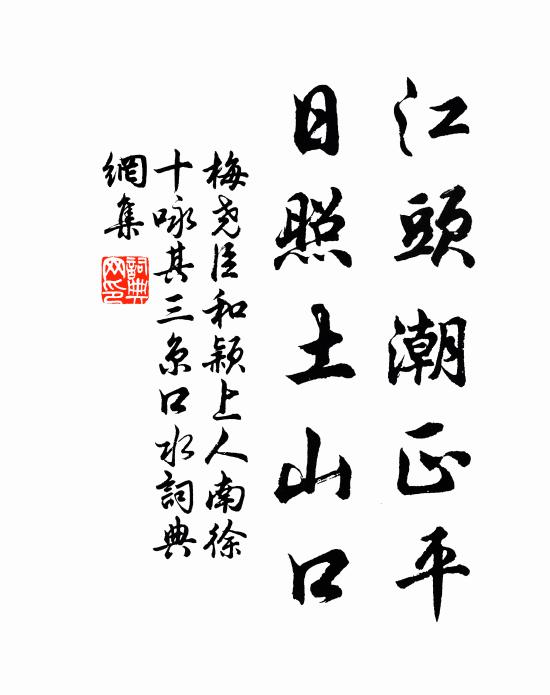 江頭潮正平
日照土山口
梅堯臣和穎上人南徐
十咏其三京口水詞典
網集
詞典
网印